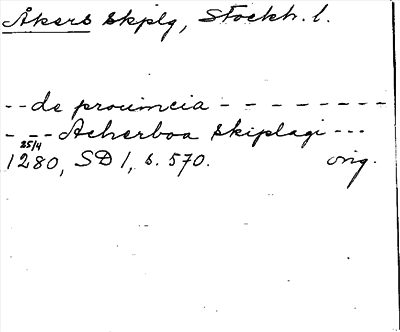 Åkers skplg, Stockh. l.
-- de prouincia - - - - - - - -
- -- Acherboa skiplagi ---
25/4
1280, SD 1, s. 570. orig.